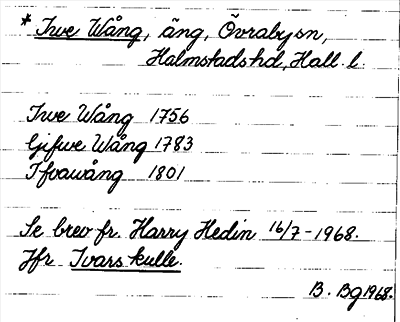 * Irve Wång, äng, Övraby sn,
Halmstads hd, Hall. l.
Irve Wång 1756
Gifwe Wång 1783
Ifvawång 1801
Se brev fr. Harry Hedin 16/7-1968.
Jfr Ivars kulle.
B. Bg 1968.